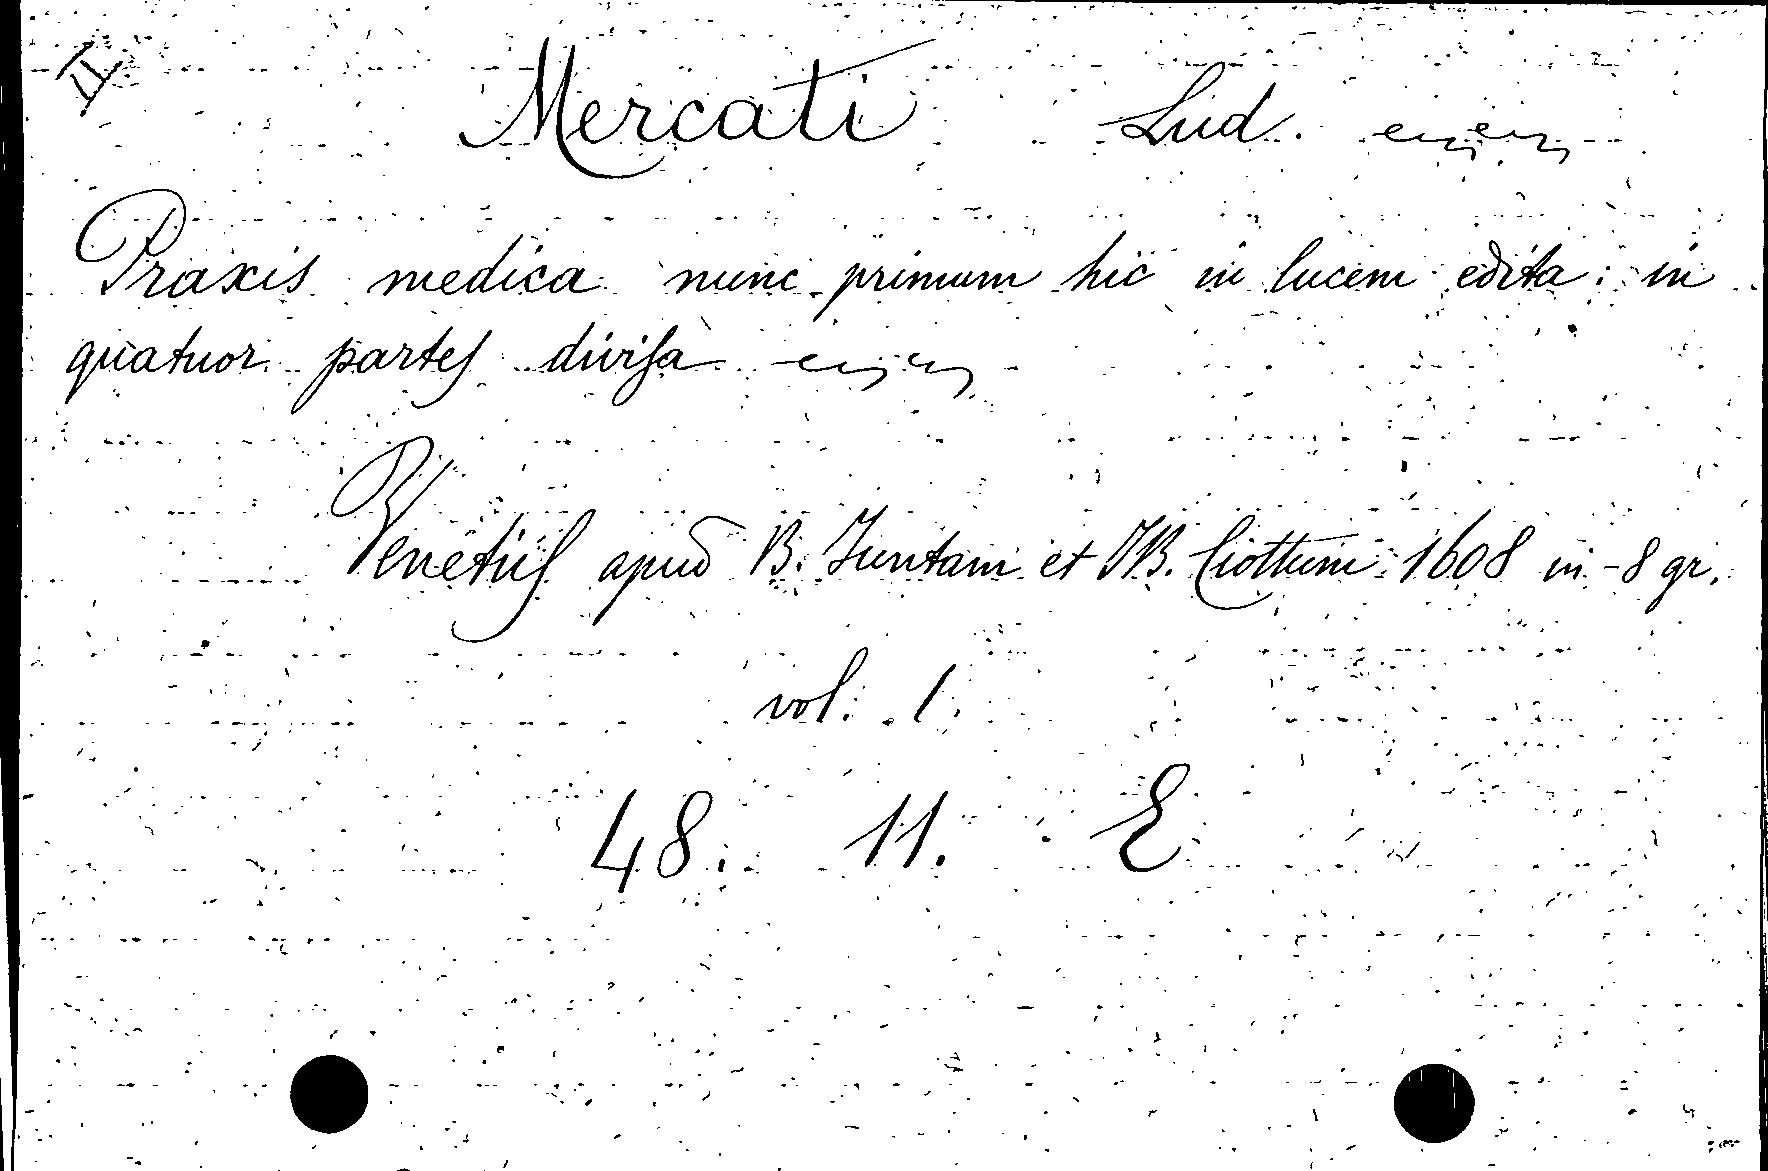 II
Mercati Lud.
Praxis medica nunc primum hic in lucem edita: in
quatuor parteſ diviſa
Venetiiſ apud B. Juntam et JB. Ciottum 1608 in-8 gr.
vol. 1.
48. 11. E